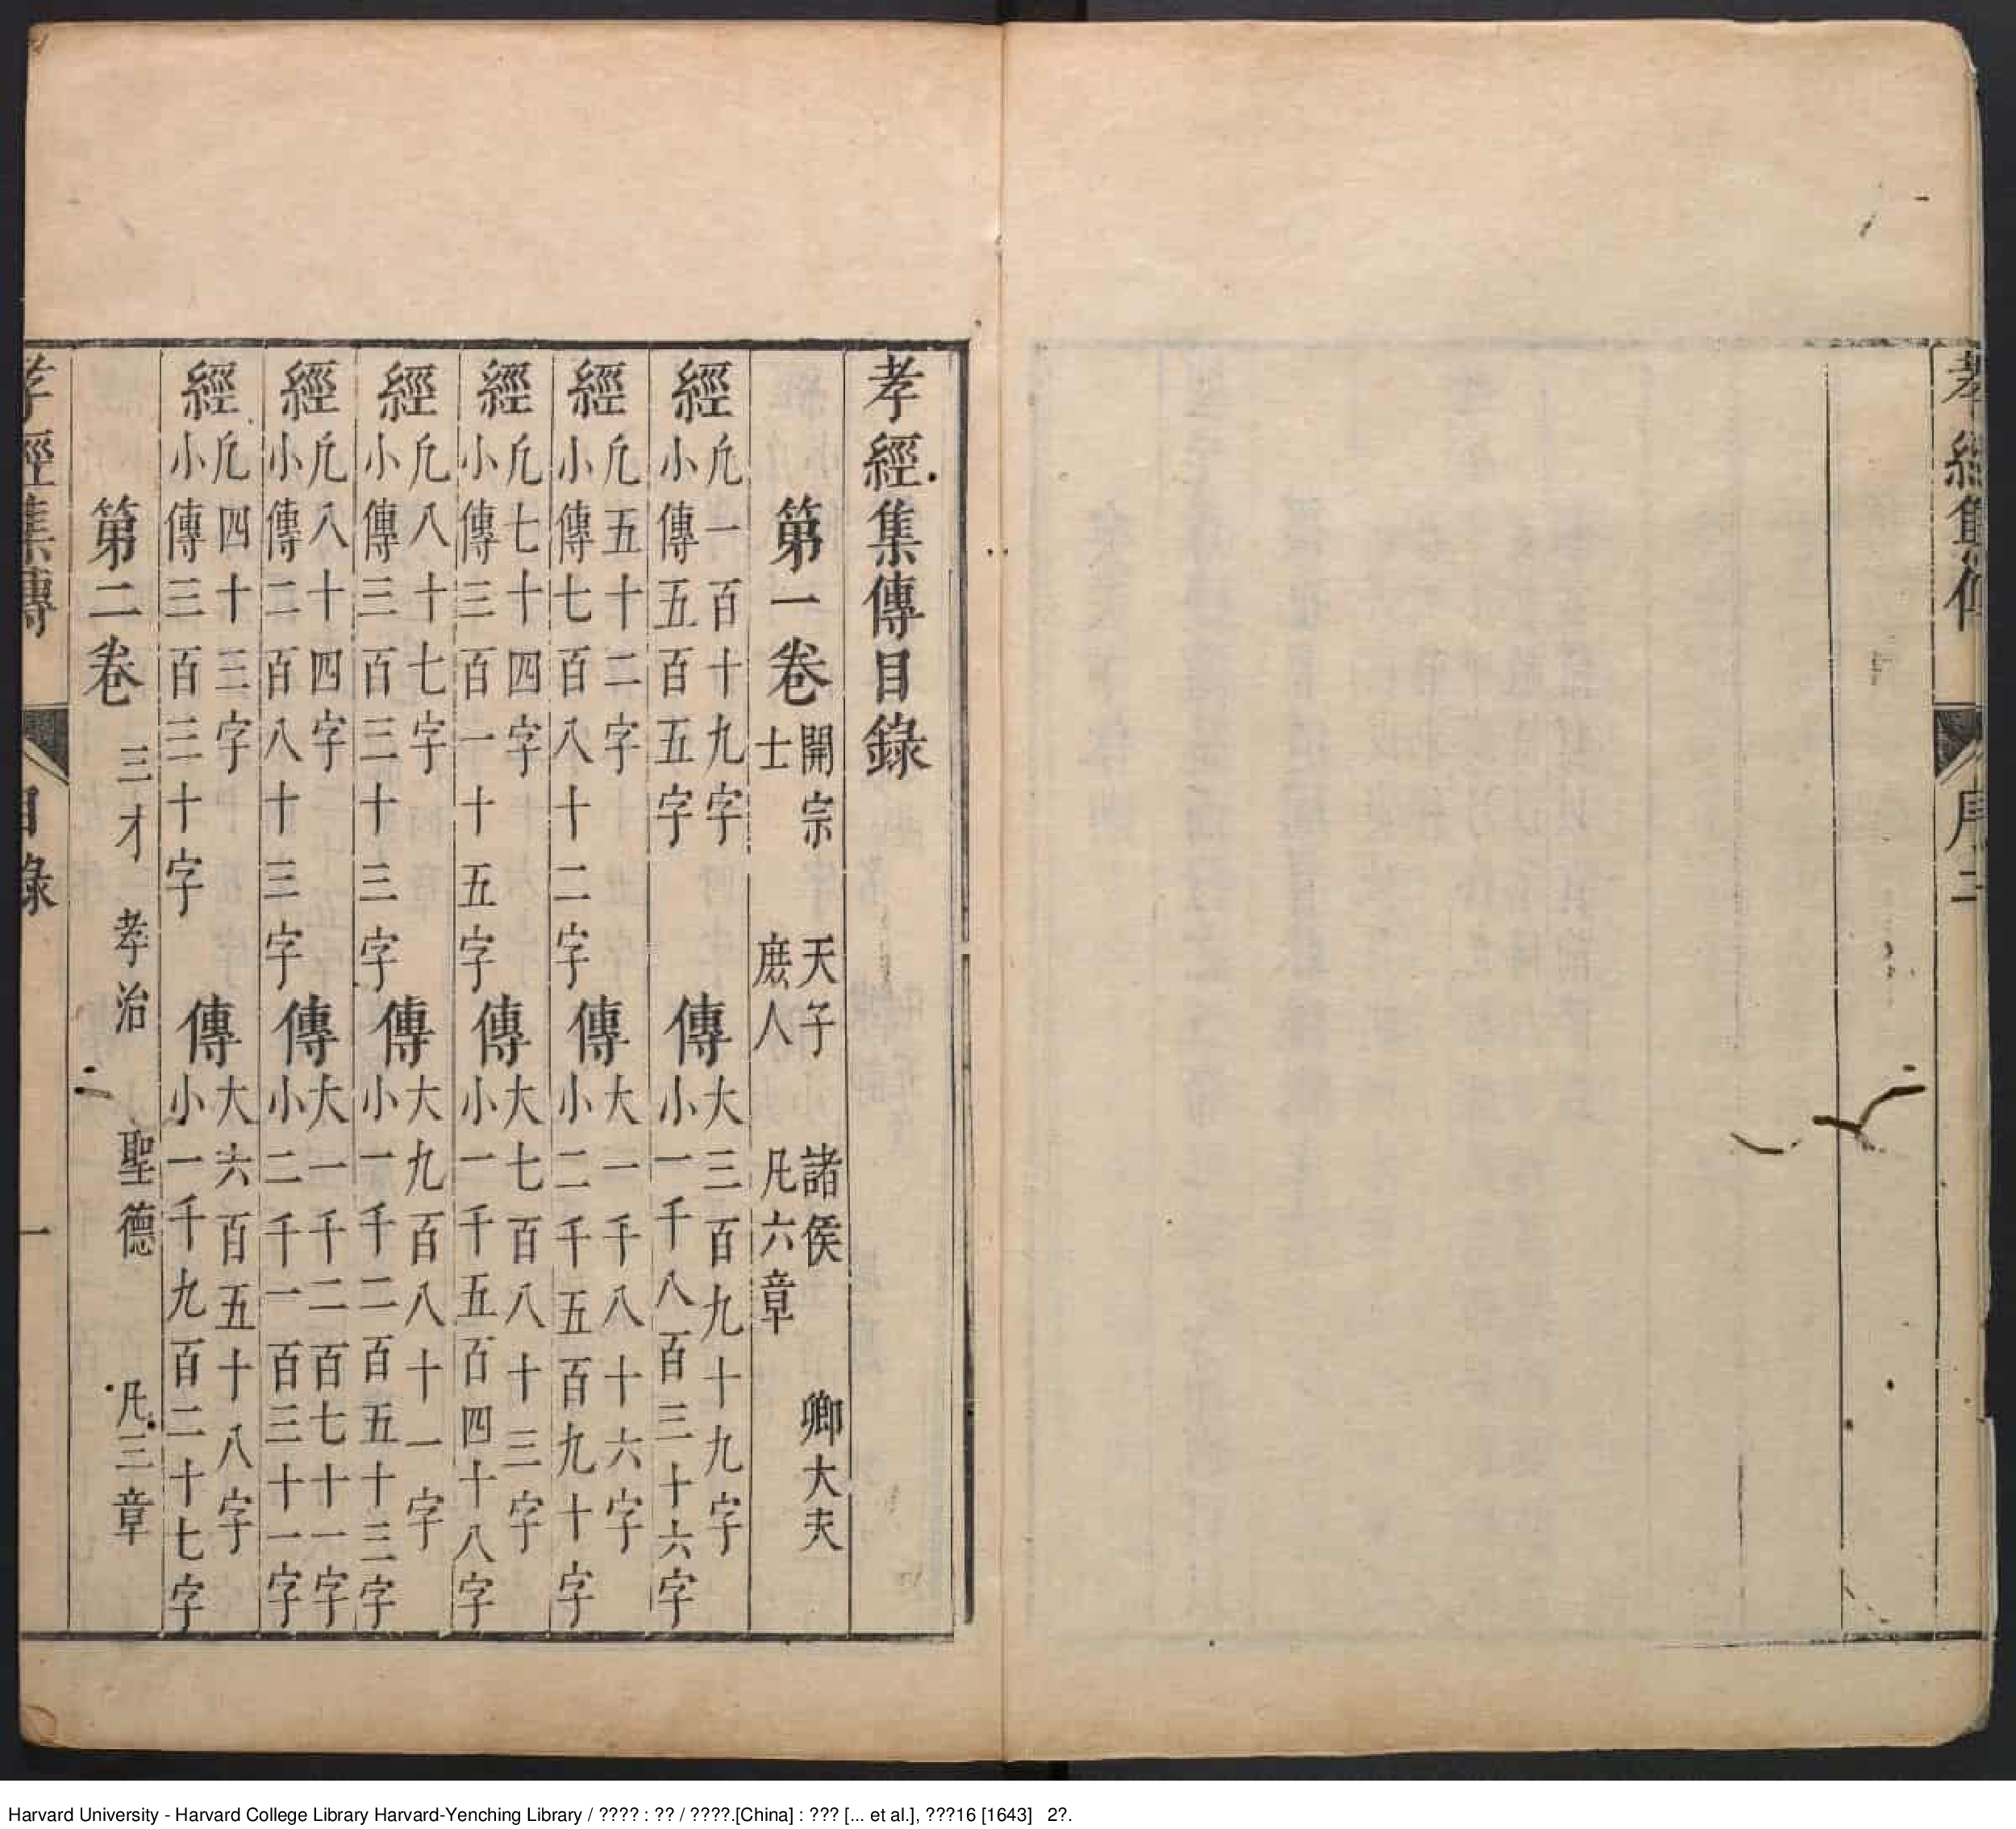 孝經集傳目錄
第一卷 開宗 天子 諸侯 卿大夫
士 庶人 凡六章
經 凡一百十九字
小傳五百五字
傳 大三百九十九字
小一千八百三十六字
經 凡五十二字
小傳七百八十二字
傳 大一千八十六字
小二千五百九十字
經 凡七十四字
小傳三百一十五字
傳 大七百八十三字
小一千五百四十八字
經 凡八十七字
小傳三百三十三字
傳 大九百八十一字
小一千二百五十三字
經 凡八十四字
小傳二百八十三字
傳 大一千二百七十一字
小二千一百三十一字
經 凡四十三字
小傳三百三十字
傳 大六百五十八字
小一千九百二十七字
第二卷 三才 孝治 聖德 凡三章
孝經集傳 目錄 一
Harvard University - Harvard College Library Harvard-Yenching Library / ???? : ?? / ????.[China] : ??? [... et al.], ???16 [1643] 2?.